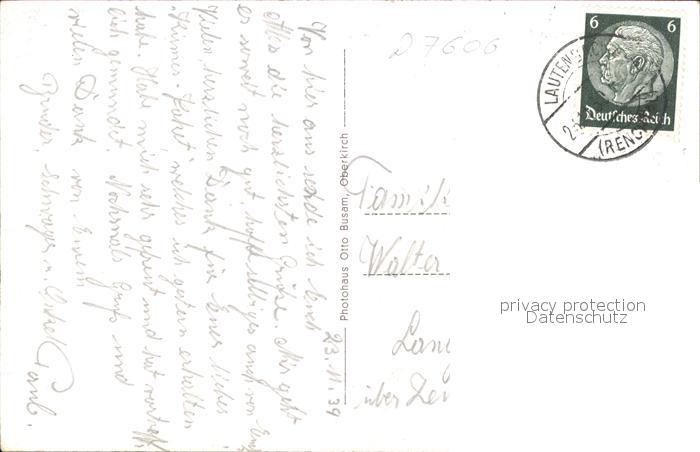 23.11.39
Von hier aus sende ich Euch
Alle die herzlichsten Grüße. Mir geht
es soweit noch gut, hoffe selbiges auch von Euch
Vielen herzlichen Dank für Euer liebes
welches ich gestern erhalten
habe. Habe mich sehr gefreut und hat vortreffl.
gemundet. Nochmals Gruß und
vielen Dank von Eurem
Bruder, Schwager u. Onkel
Paul.
Photohaus Otto Busam, Oberkirch
D 7606
6 6
Deutsches Reich
LAUTENB
(RENCH
Famili
Walter
Lan
über
privacy protection
Datenschutz